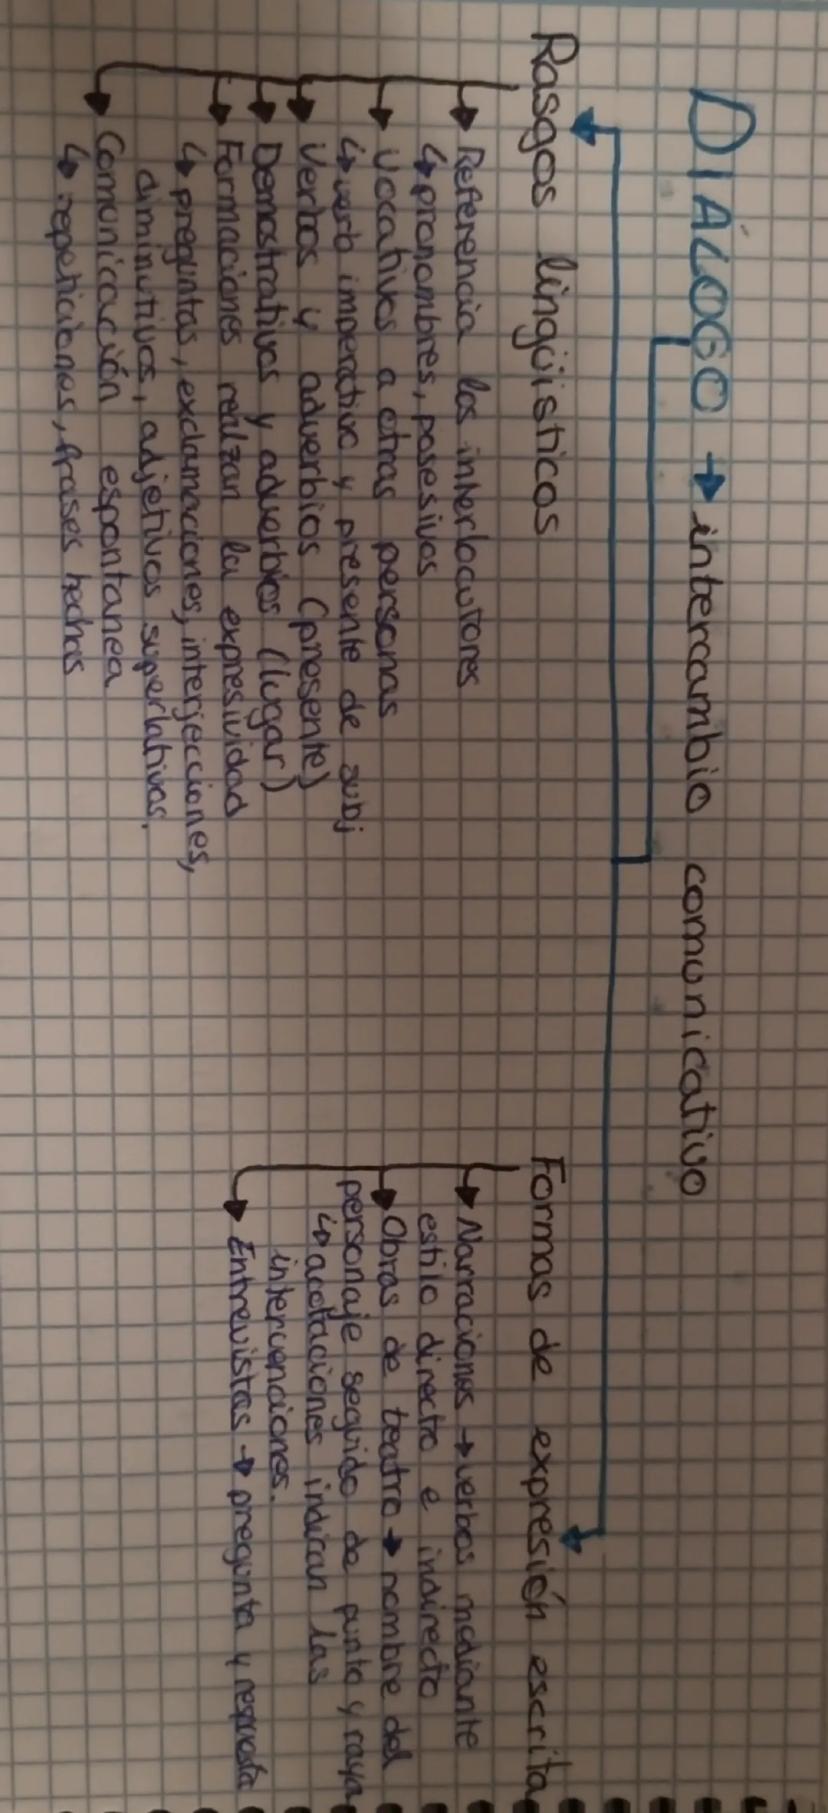 DIÁLOGO → intercambio comunicativo
Rasgos lingüísticos
→ Referencia los interlocutores
↳ pronombres, posesivos
→ Vocativos a otras personas
↳ verb imperativo y presente de subj
→ Verbos y adverbios (presente)
→ Demostrativos y adverbios (lugar)
→ Formaciones realzan la expresividad
↳ preguntas, exclamaciones, interjecciones,
diminutivos, adjetivos superlativos.
→ Comunicación espontanea
↳ repeticiones, frases hechas
Formas de expresión escrita
→ Narraciones → verbos mediante
estilo directo e indirecto
→ Obras de teatro → nombre del
personaje seguido de punto y raya
↳ acotaciones indican las
intervenciones.
→ Entrevistas → pregunta y respuesta